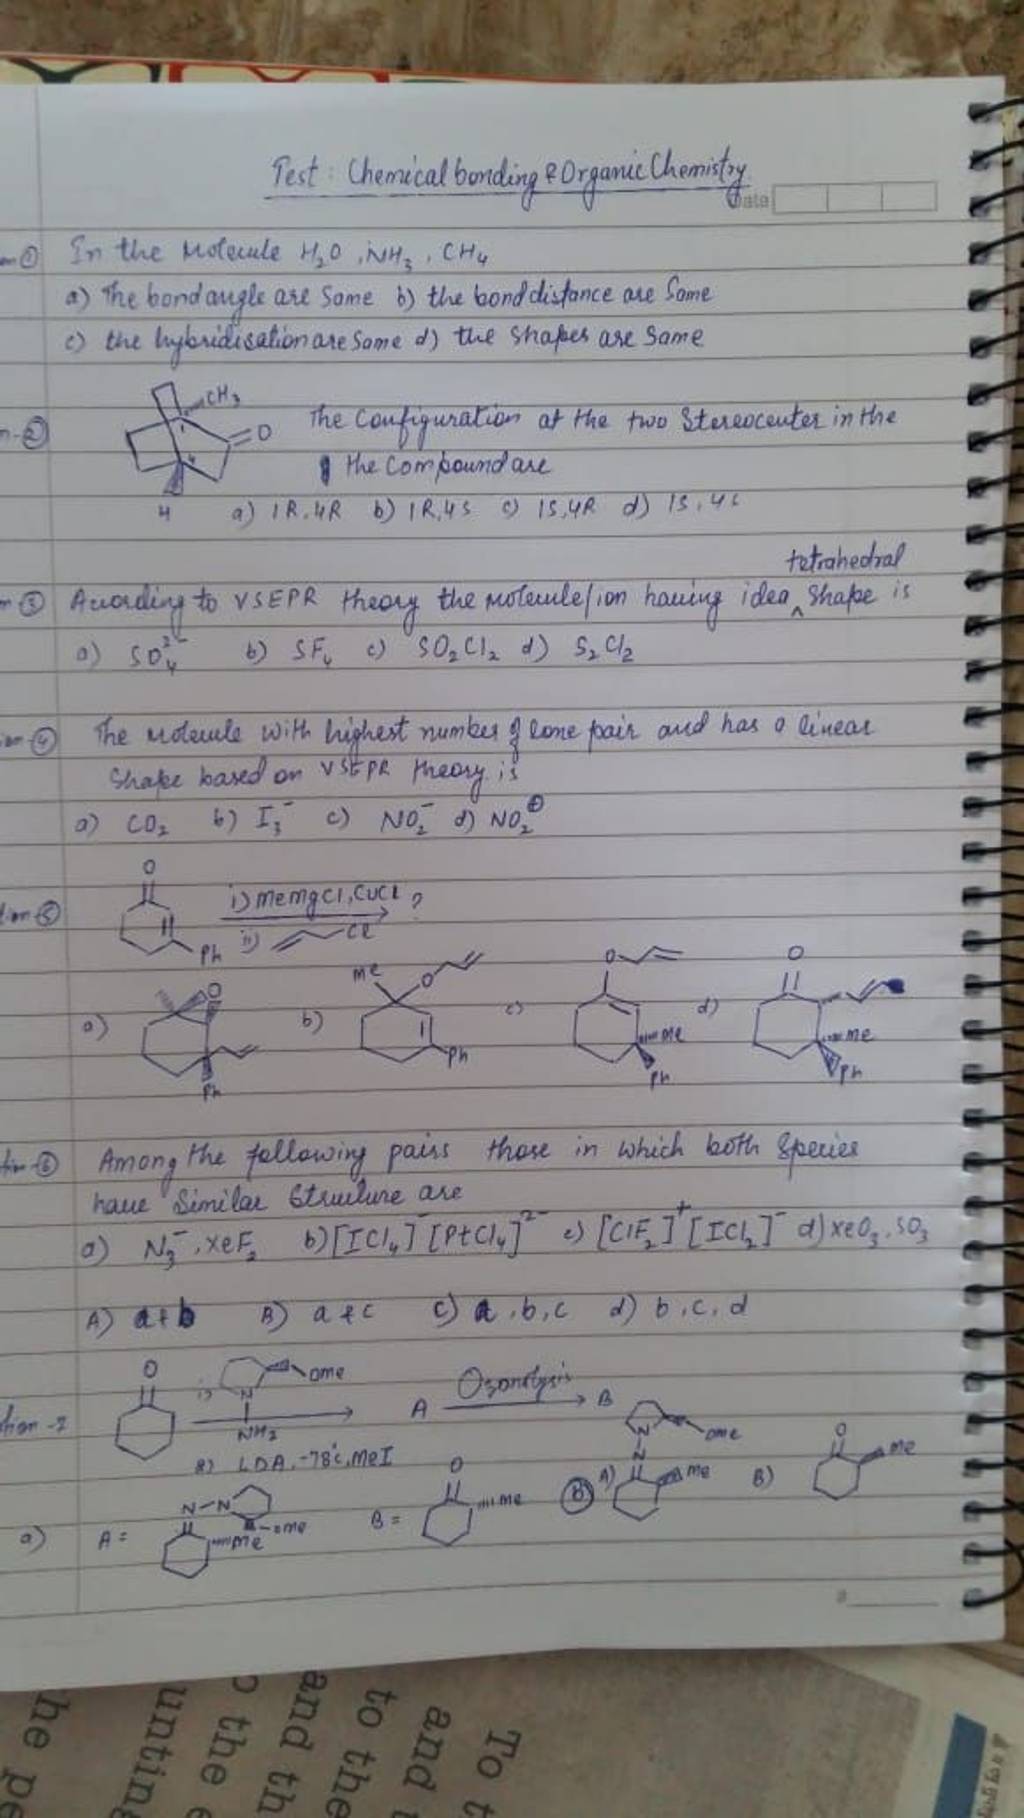 Test : Chemical bonding & Organic Chemistry
Date
① In the Molecule H₂O, NH₃, CH₄
a) The bond angle are Same b) the bond distance are Same
c) the hybridisation are Same d) the Shapes are Same
CH₃
O
H
② The Configuration at the two Stereocenter in the
the Compound are
a) 1R,4R b) 1R,4S c) 1S,4R d) 1S,4S
tetrahedral
③ According to VSEPR theory the Molecule/ion having idea ^ Shape is
a) SO₄²⁻ b) SF₄ c) SO₂Cl₂ d) S₂Cl₂
④ The Molecule with highest number of lone pair and has a linear
Shape based on VSEPR theory is
a) CO₂ b) I₃⁻ c) NO₂⁻ d) NO₂⊕
O
⑤ i) MeMgCl, CuCl ?
Ph ii) Cl
a) O Ph b) Me O Ph c) O Me Ph d) O Me Ph
⑥ Among the following pairs those in which both Species
have Similar Structure are
a) N₃⁻, XeF₂ b) [ICl₄]⁻ [PtCl₄]²⁻ c) [ClF₂]⁺ [ICl₂]⁻ d) XeO₃, SO₃
A) a+b B) a & c C) a, b, c d) b, c, d
O i) N OMe
-7 NH₂ A Ozonolysis B
LDA, -78°c, MeI
a) A = N-N OMe Me B = O Me
B) A) N OMe N Me B) O Me
he pe
unting
o the
and th
to the
and
To t